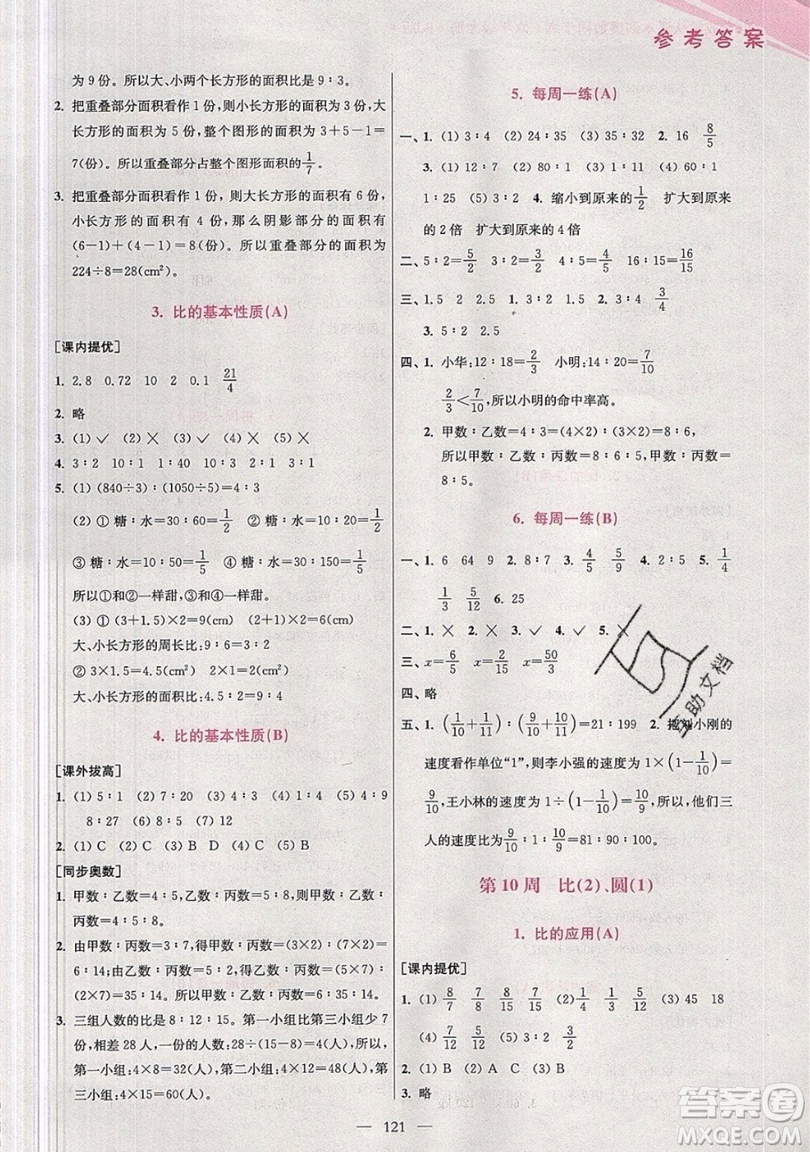 参考答案
为 9 份。所以大、小两个长方形的面积比是 9∶3。
2. 把重叠部分面积看作 1 份，则小长方形的面积为 3 份，大
长方形的面积为 5 份，整个图形的面积为 3+5-1=
7(份)。所以重叠部分占整个图形的面积的1/7。
3. 把重叠部分面积看作 1 份，则大长方形的面积有 6 份，
小长方形的面积有 4 份，那么阴影部分的面积有
(6-1)+(4-1)=8(份)。所以重叠部分的面积为
224÷8=28(cm²)。
3. 比的基本性质(A)
[课内提优]
1. 2.8 0.72 10 2 0.1 21/4
2. 略
3. (1) ✓ (2) × (3) ✓ (4) ×
4. 3∶2 10∶1 40∶1 10∶1 3∶1
5. (1) (840÷3)∶(1050÷5)=4∶3
(2) ① 糖∶水=30∶120=1/4 ② 糖∶水=50∶200=1/4
③ 糖∶水=30∶150=1/5 ④ 糖∶水=10∶50=1/5
所以①和②一样甜，③和④一样甜。
(3) ① (3+1.5)×2=9(cm) (2+1)×2=6(cm)
大、小长方形的周长比：9∶6=3∶2
② 3×1.5=4.5(cm²) 2×1=2(cm²)
大、小长方形的面积比：4.5∶2=9∶4
4. 比的基本性质(B)
[课外拔高]
1. (1) 5∶1 (2) 7∶20 (3) 4∶3 (4) 1∶4 (5) 4∶9
8∶27 (6) 5∶8 (7) 12
2. (1) C (2) C (3) B (4) D (5) A
[同步奥数]
1. 甲数∶乙数=4∶5，乙数∶丙数=5∶8，则甲数∶乙数∶
丙数=4∶5∶8。
2. 由甲数∶丙数=3∶7，得甲数∶丙数=(3×2)∶(7×2)=
6∶14；由乙数∶丙数=5∶7，得乙数∶丙数=(5×2)∶
(7×2)=10∶14。所以甲数∶乙数∶丙数=6∶10∶14=
3∶5∶7。
3. 三组人数的比是 8∶12∶15。第一小组比第三小组少 7
份，相差 28 人，一份的人数：28÷(15-8)=4(人)，所以，
第一小组：4×8=32(人)，第二小组：4×12=48(人)，第
三小组：4×15=60(人)。
5. 每周一练(A)
一、1. (1) 3∶4 (2) 24∶35 (3) 4∶3 2. 16 8/5
3. (1) 12∶7 (2) 80∶1 (3) 10∶1 (4) 32∶1
1∶25 (5) 2∶1 4. 缩小到原来的1/2 扩大到原
来的 2 倍 扩大到原来的 4 倍
二、5∶2=5/2 12∶5=12/5 16∶15=16/15 4∶5=4/5
三、1. 5∶2 2.5 2. 10∶4 2.5 3∶4 3/4
3. 5∶2 2.5
四、1. 小华：12∶18=2/3 小明：7∶10=7/10
2/3<7/10，所以小明的命中率高。
2. 甲数∶乙数=4∶3=(4×2)∶(3×2)=8∶6，
所以甲数∶乙数∶丙数=8∶6∶5。
6. 每周一练(B)
一、1. 6 64 9 2. 8∶7 3. 4/5 5/9 4. 2∶5 5. 1/4
3/4 5/12 6. 25
二、1. × 2. × 3. × 4. ✓ 5. ×
三、x=6/5 x=4/15 x=50/3
四、略
五、1. (1/10+1/11)∶(9/10+10/11)=21∶199 2. 把刘小刚的
速度看作单位“1”，则李小强的速度为 1×(1-1/10)=
9/10，王小林的速度为 1÷(1-1/10)=10/9，所以，他们三
人的速度比为9/10∶1∶10/9=81∶90∶100。
第 10 周 比(2)、圆(1)
1. 比的应用(A)
[课内提优]
1. (1) 8/7 7/8 8/15 7/15 (2) 6 24 (3) 45 18
(4) 7/12 5/12 5∶7∶12 3/2
2. (1) B (2) C (3) B (4) C
3. 略
121
互助文档
答案圈
MXQE.COM